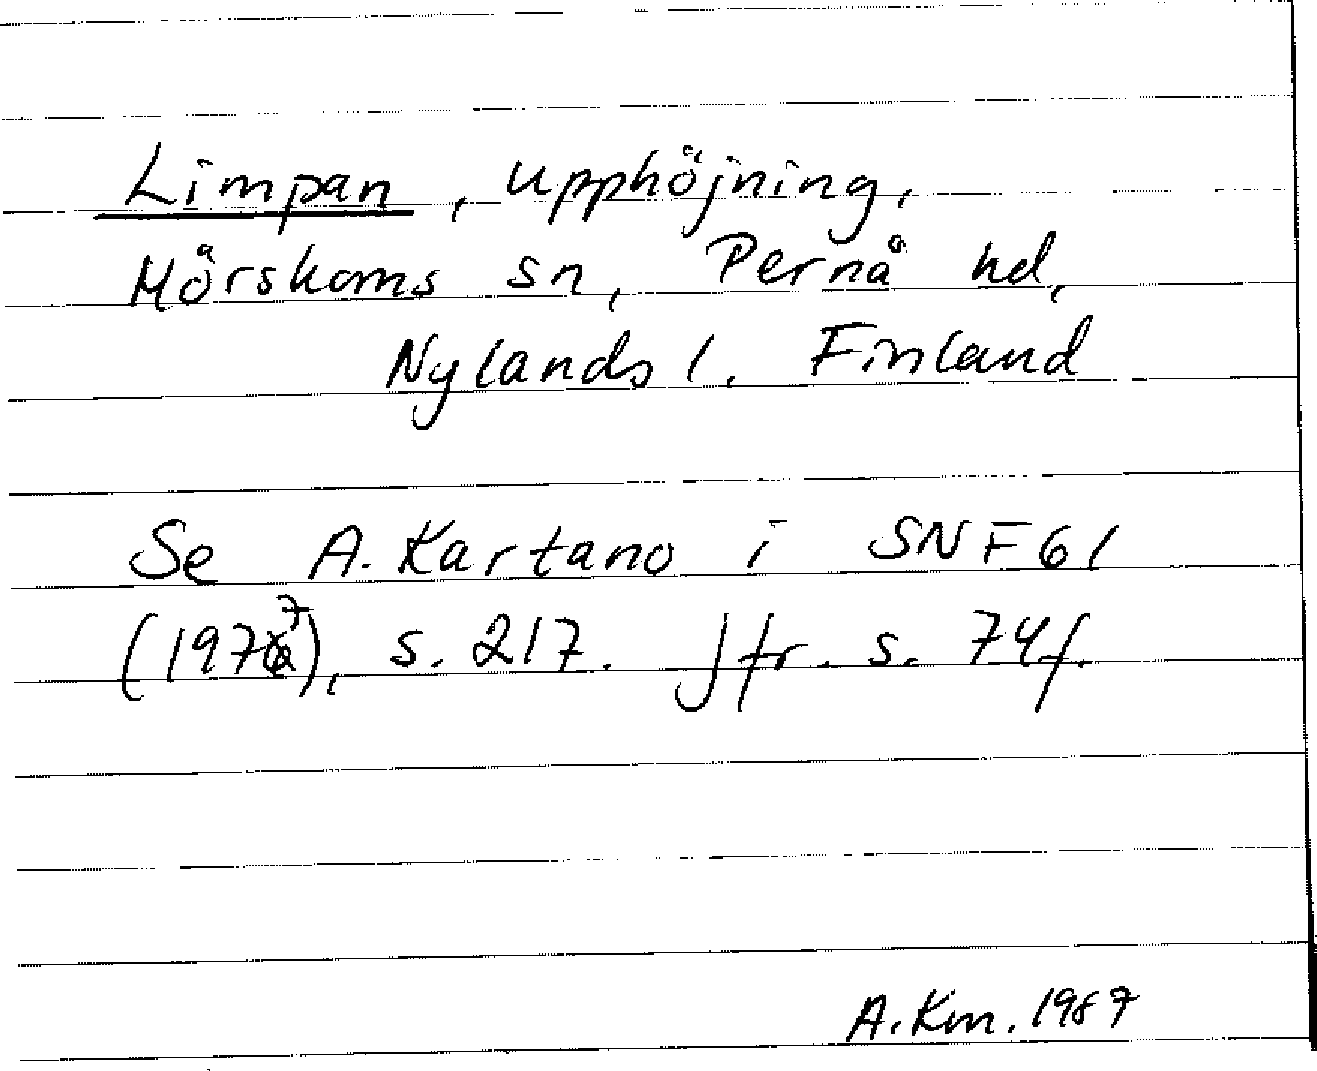 Limpan, upphöjning,
Mörskoms sn, Pernå hd,
Nylands l. Finland
Se A. Kartano i SNF 61
(1977), s. 217. Jfr. s. 74f.
A. Km. 1987